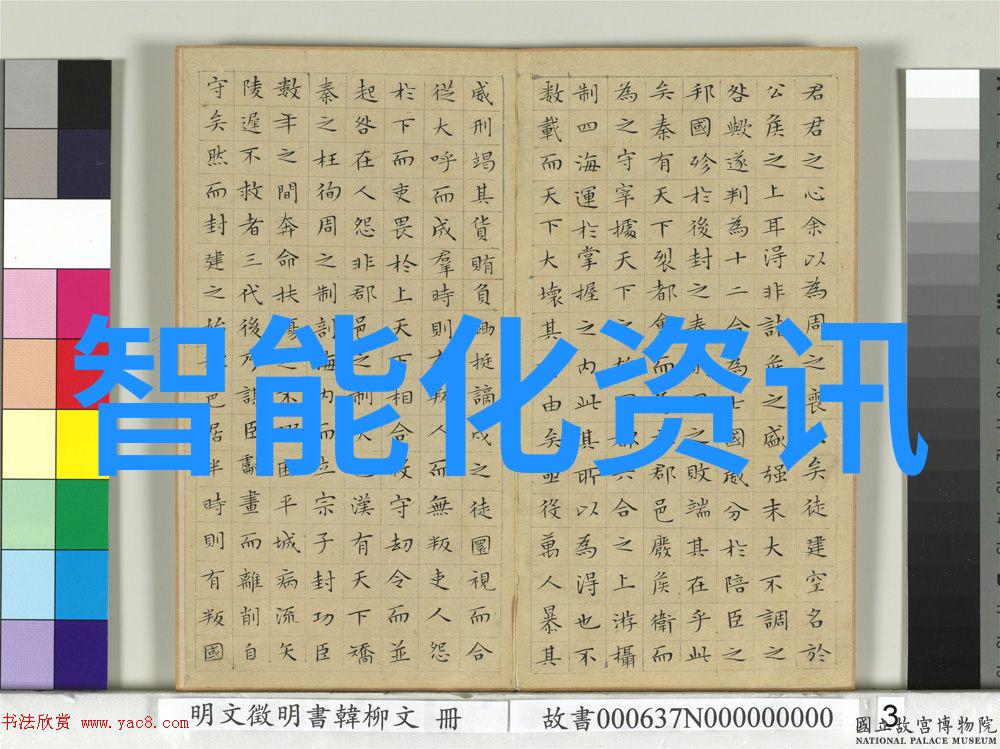 君君之心余以為周之喪矣徒建空名於
公侯之上耳得非諸侯之盛强末大不調之
咎歟遂判為十二合為七國威分於陪臣之
邦國殄於後封之秦之敗端其在乎此
矣秦有天下裂都會而郡邑廢侯衛而
為之守宰據天下之合之上游攝
制四海運於掌握之內此其所以為得也不
數載而天下大壞其由矣亟役萬人暴其
威刑竭其貨賄負鋤梃謫戍之徒圜視而合
從大呼而成羣時則有叛人而無叛吏人怨
於下而吏畏於上天下相合殺守劫令而並
起咎在人怨非郡邑之制失也漢有天下矯
秦之枉徇周之制剖海內而立宗子封功臣
數年之間奔命扶傷之不暇困平城病流矢
陵遲不救者三代後乃謀臣獻畫而離削自
守矣然而封建之始邑居半時則有叛國
智能化资讯
明文徵明書韓柳文 冊
故書000637N000000000
3
书法欣赏 www.yac8.com
國立故宮博物院
NATIONAL PALACE MUSEUM